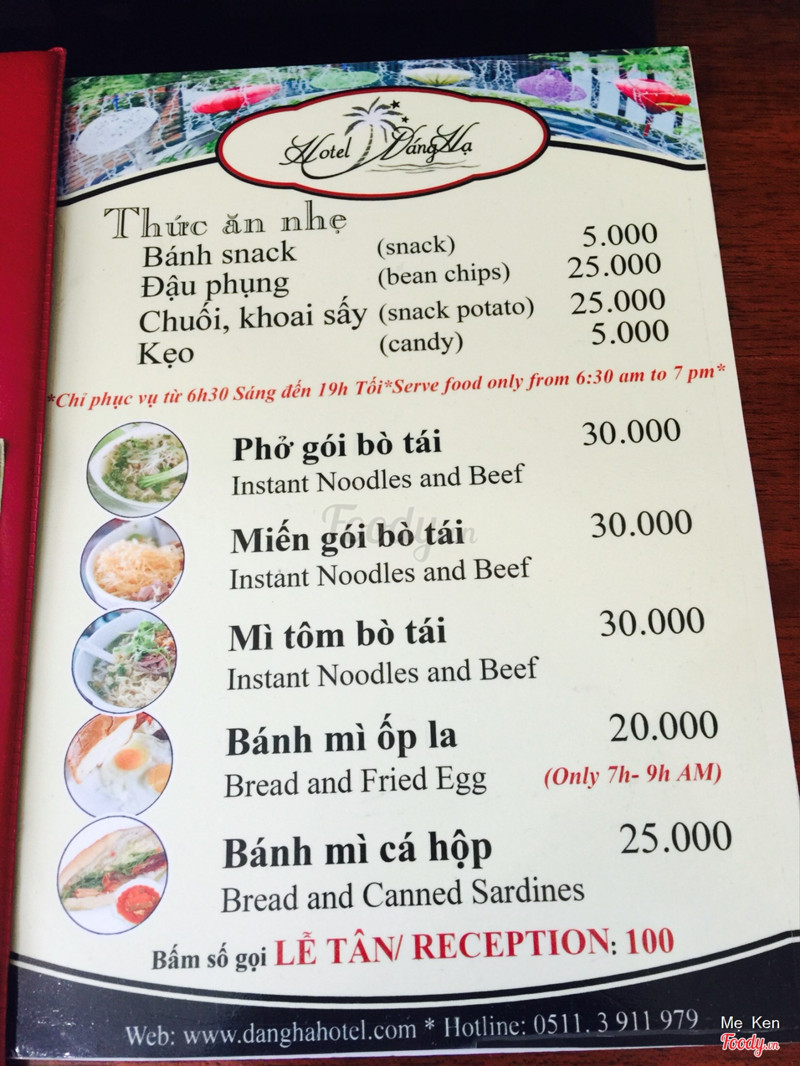 Hotel Dáng Hạ
Thức ăn nhẹ
Bánh snack (snack) 5.000
Đậu phụng (bean chips) 25.000
Chuối, khoai sấy (snack potato) 25.000
Kẹo (candy) 5.000
*Chỉ phục vụ từ 6h30 Sáng đến 19h Tối*Serve food only from 6:30 am to 7 pm*
Phở gói bò tái 30.000
Instant Noodles and Beef
Foody.vn
Miến gói bò tái 30.000
Instant Noodles and Beef
Mì tôm bò tái 30.000
Instant Noodles and Beef
Bánh mì ốp la 20.000
Bread and Fried Egg (Only 7h- 9h AM)
Bánh mì cá hộp 25.000
Bread and Canned Sardines
Bấm số gọi LỄ TÂN/ RECEPTION: 100
Web: www.danghahotel.com * Hotline: 0511. 3 911 979
Mẹ Ken
Foody.vn